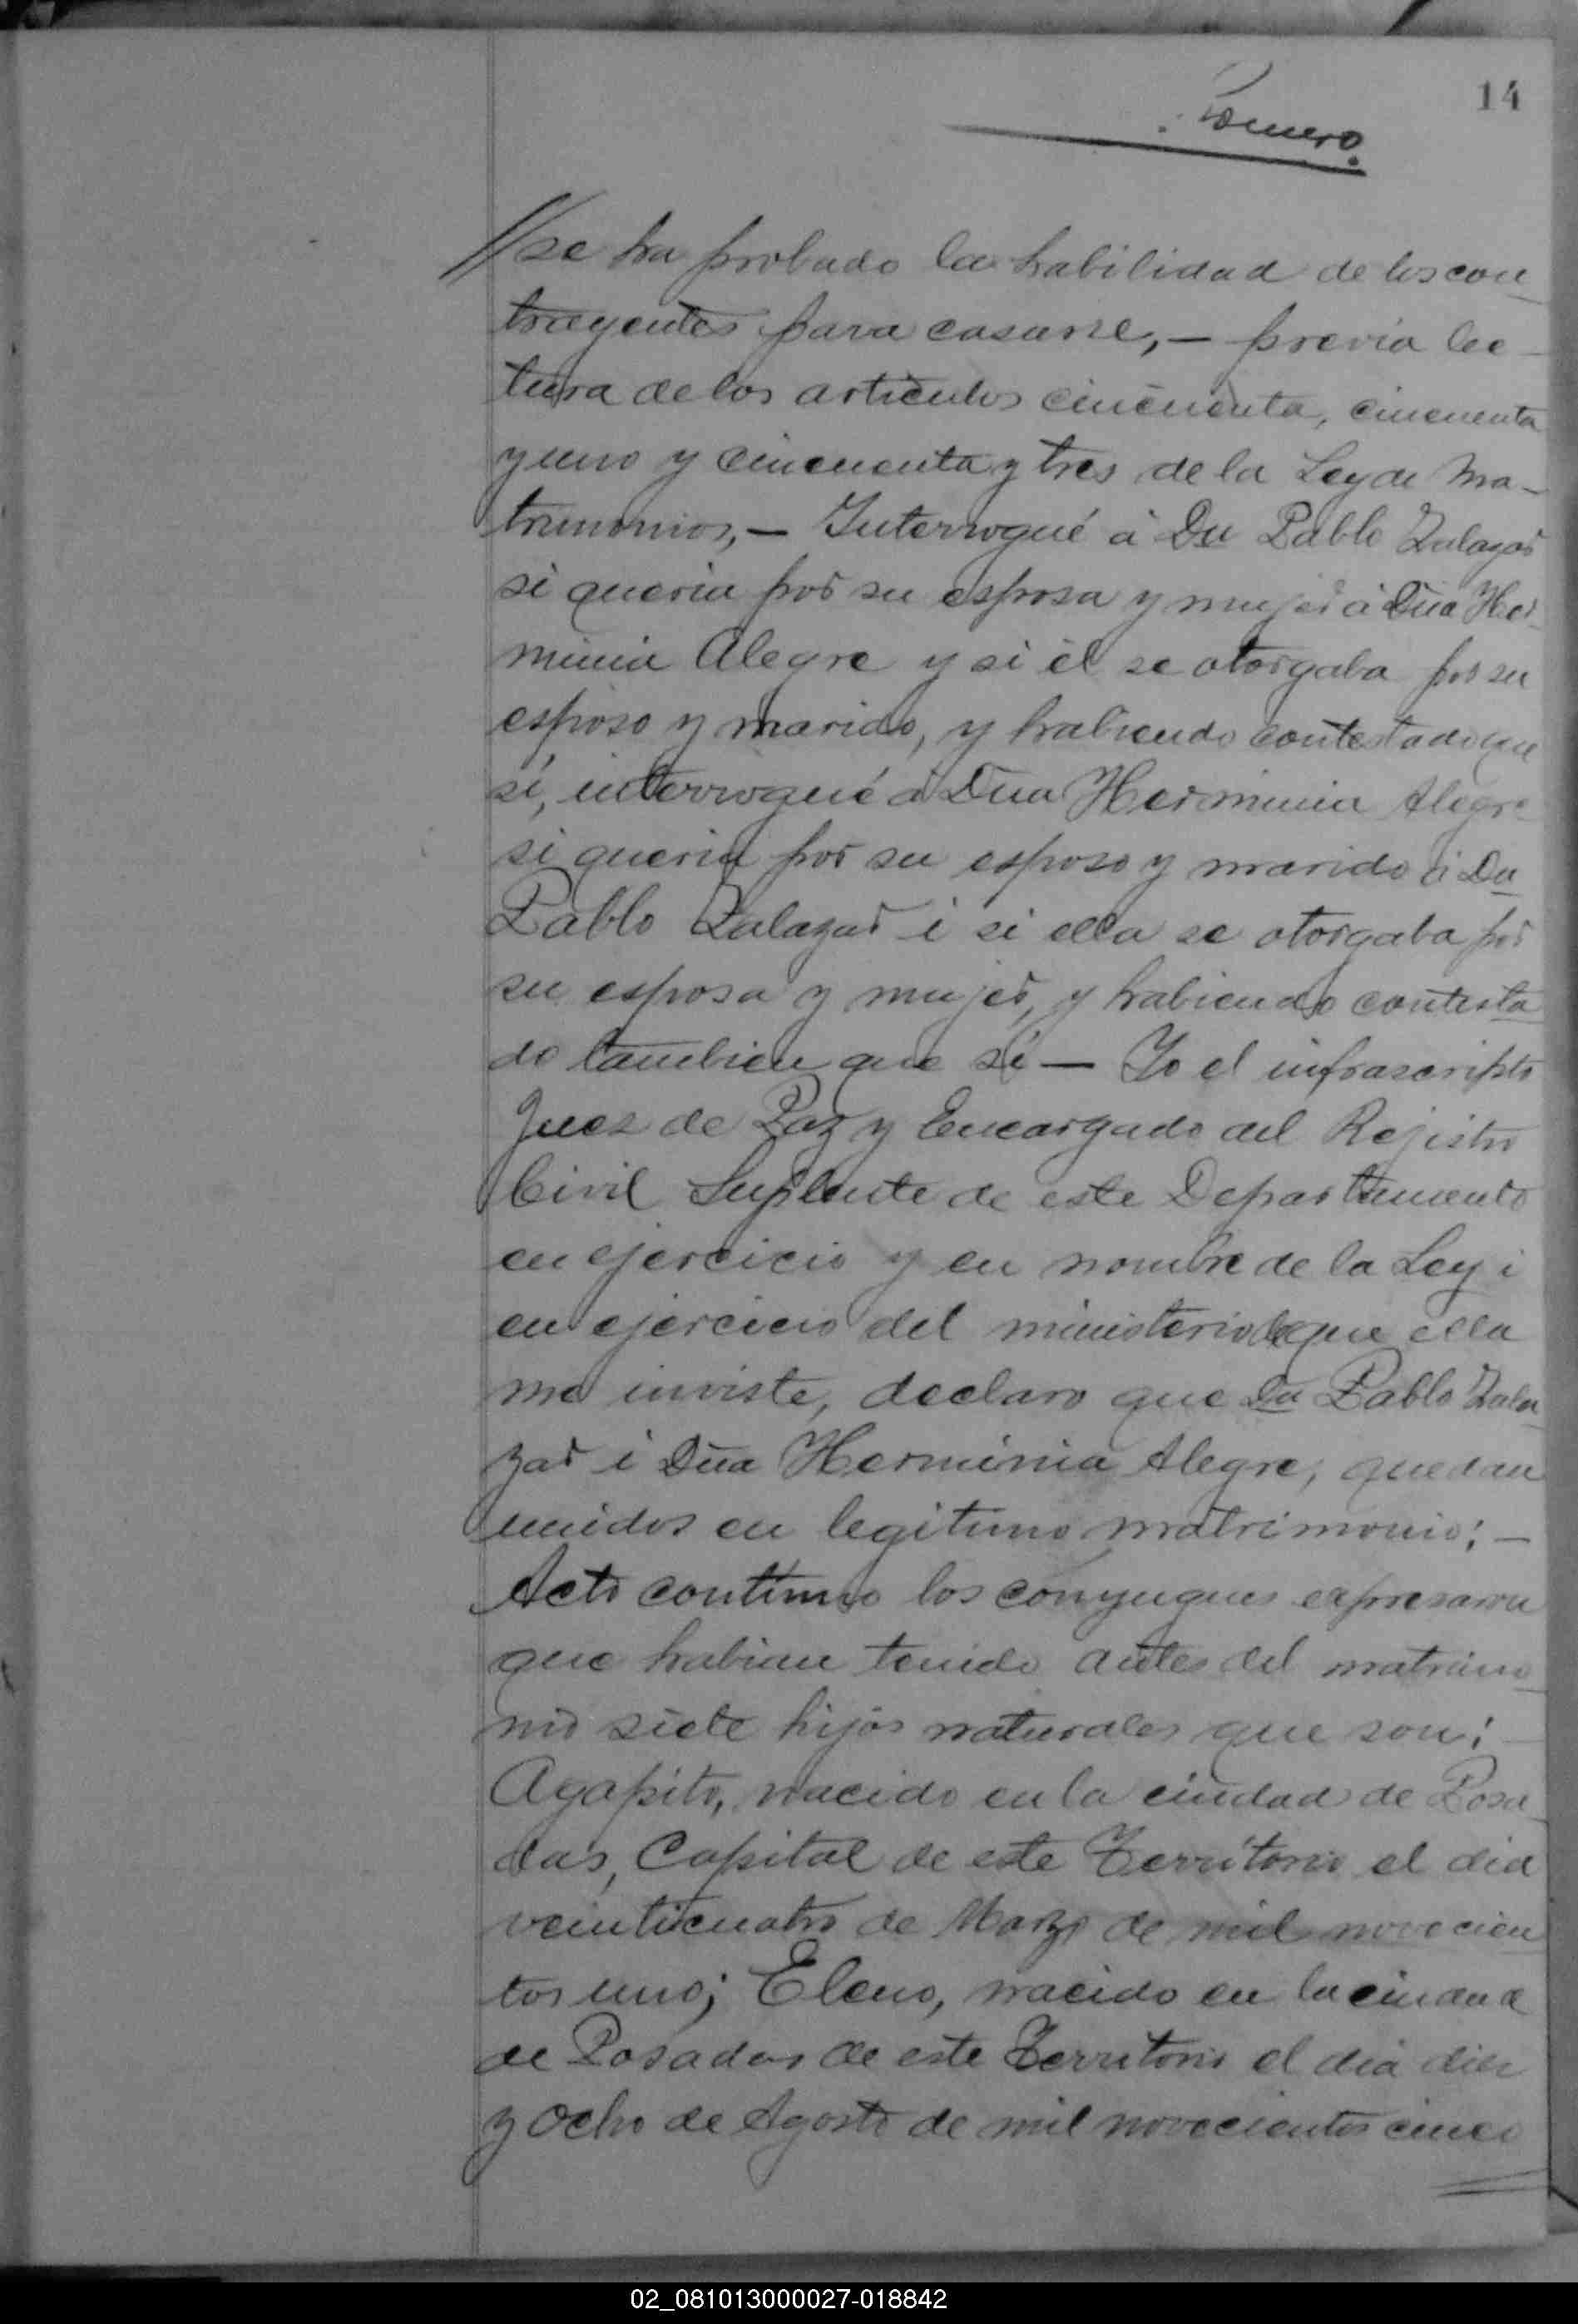 14
Romero.
//se ha probado la habilidad de los con_
trayentes para casarse,— previa lec_
tura de los artículos cincuenta, cincuenta
y uno y cincuenta y tres de la Ley de Ma_
trimonios,— Interrogué á Dn Pablo Zalazar
si queria por su esposa y mujer á Dña Her_
minia Alegre y si él se otorgaba por su
esposo y marido, y habiendo contestado que
si, interrogué á Dña Herminia Alegre
si queria por su esposo y marido á Dn
Pablo Zalazar i si ella se otorgaba por
su esposa y mujer, y habiendo contesta_
do tambien que sí — Yo el infrascripto
Juez de Paz y Encargado del Rejistro
Civil Suplente de este Departamento
en ejercicio y en nombre de la Ley i
en ejercicio del ministerio de que ella
me inviste, declaro que Dn Pablo Zala_
zar i Dña Herminia Alegre, quedan
unidos en legitimo matrimonio;—
Acto contínuo los cónyugues expresaron
que habian tenido antes del matrimo_
nio siete hijos naturales que son:
Agapito, nacido en la ciudad de Posa_
das, Capital de este Territorio el dia
veinticuatro de Marzo de mil novecien_
tos uno; Eleno, nacido en la ciudad
de Posadas de este Territorio el dia diez
y ocho de Agosto de mil novecientos cinco
02_081013000027-018842